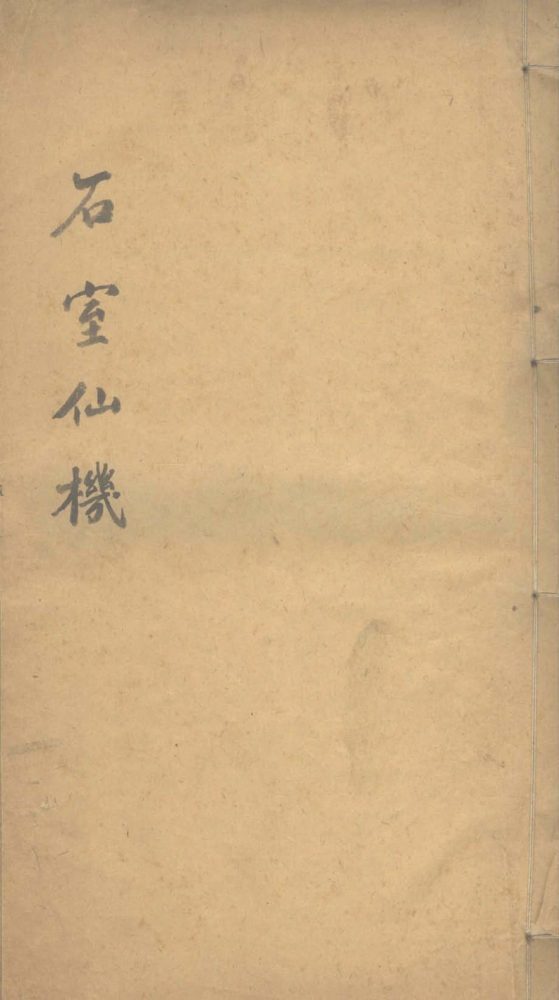 石室仙機